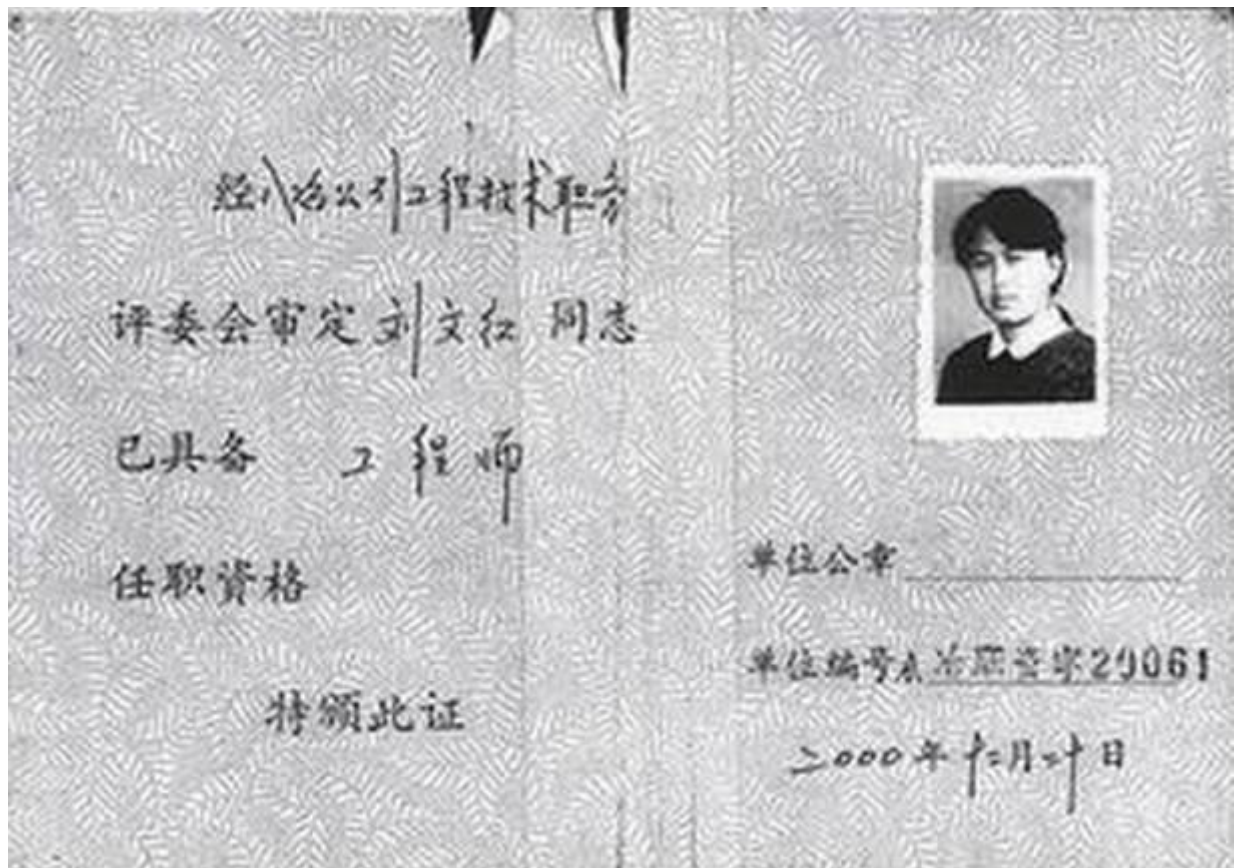 经八冶公司工程技术职务
评委会审定刘文红 同志
已具备 工程师
任职资格
特颁此证
单位公章
单位编号 冶职资字20061
二000年十二月二十日